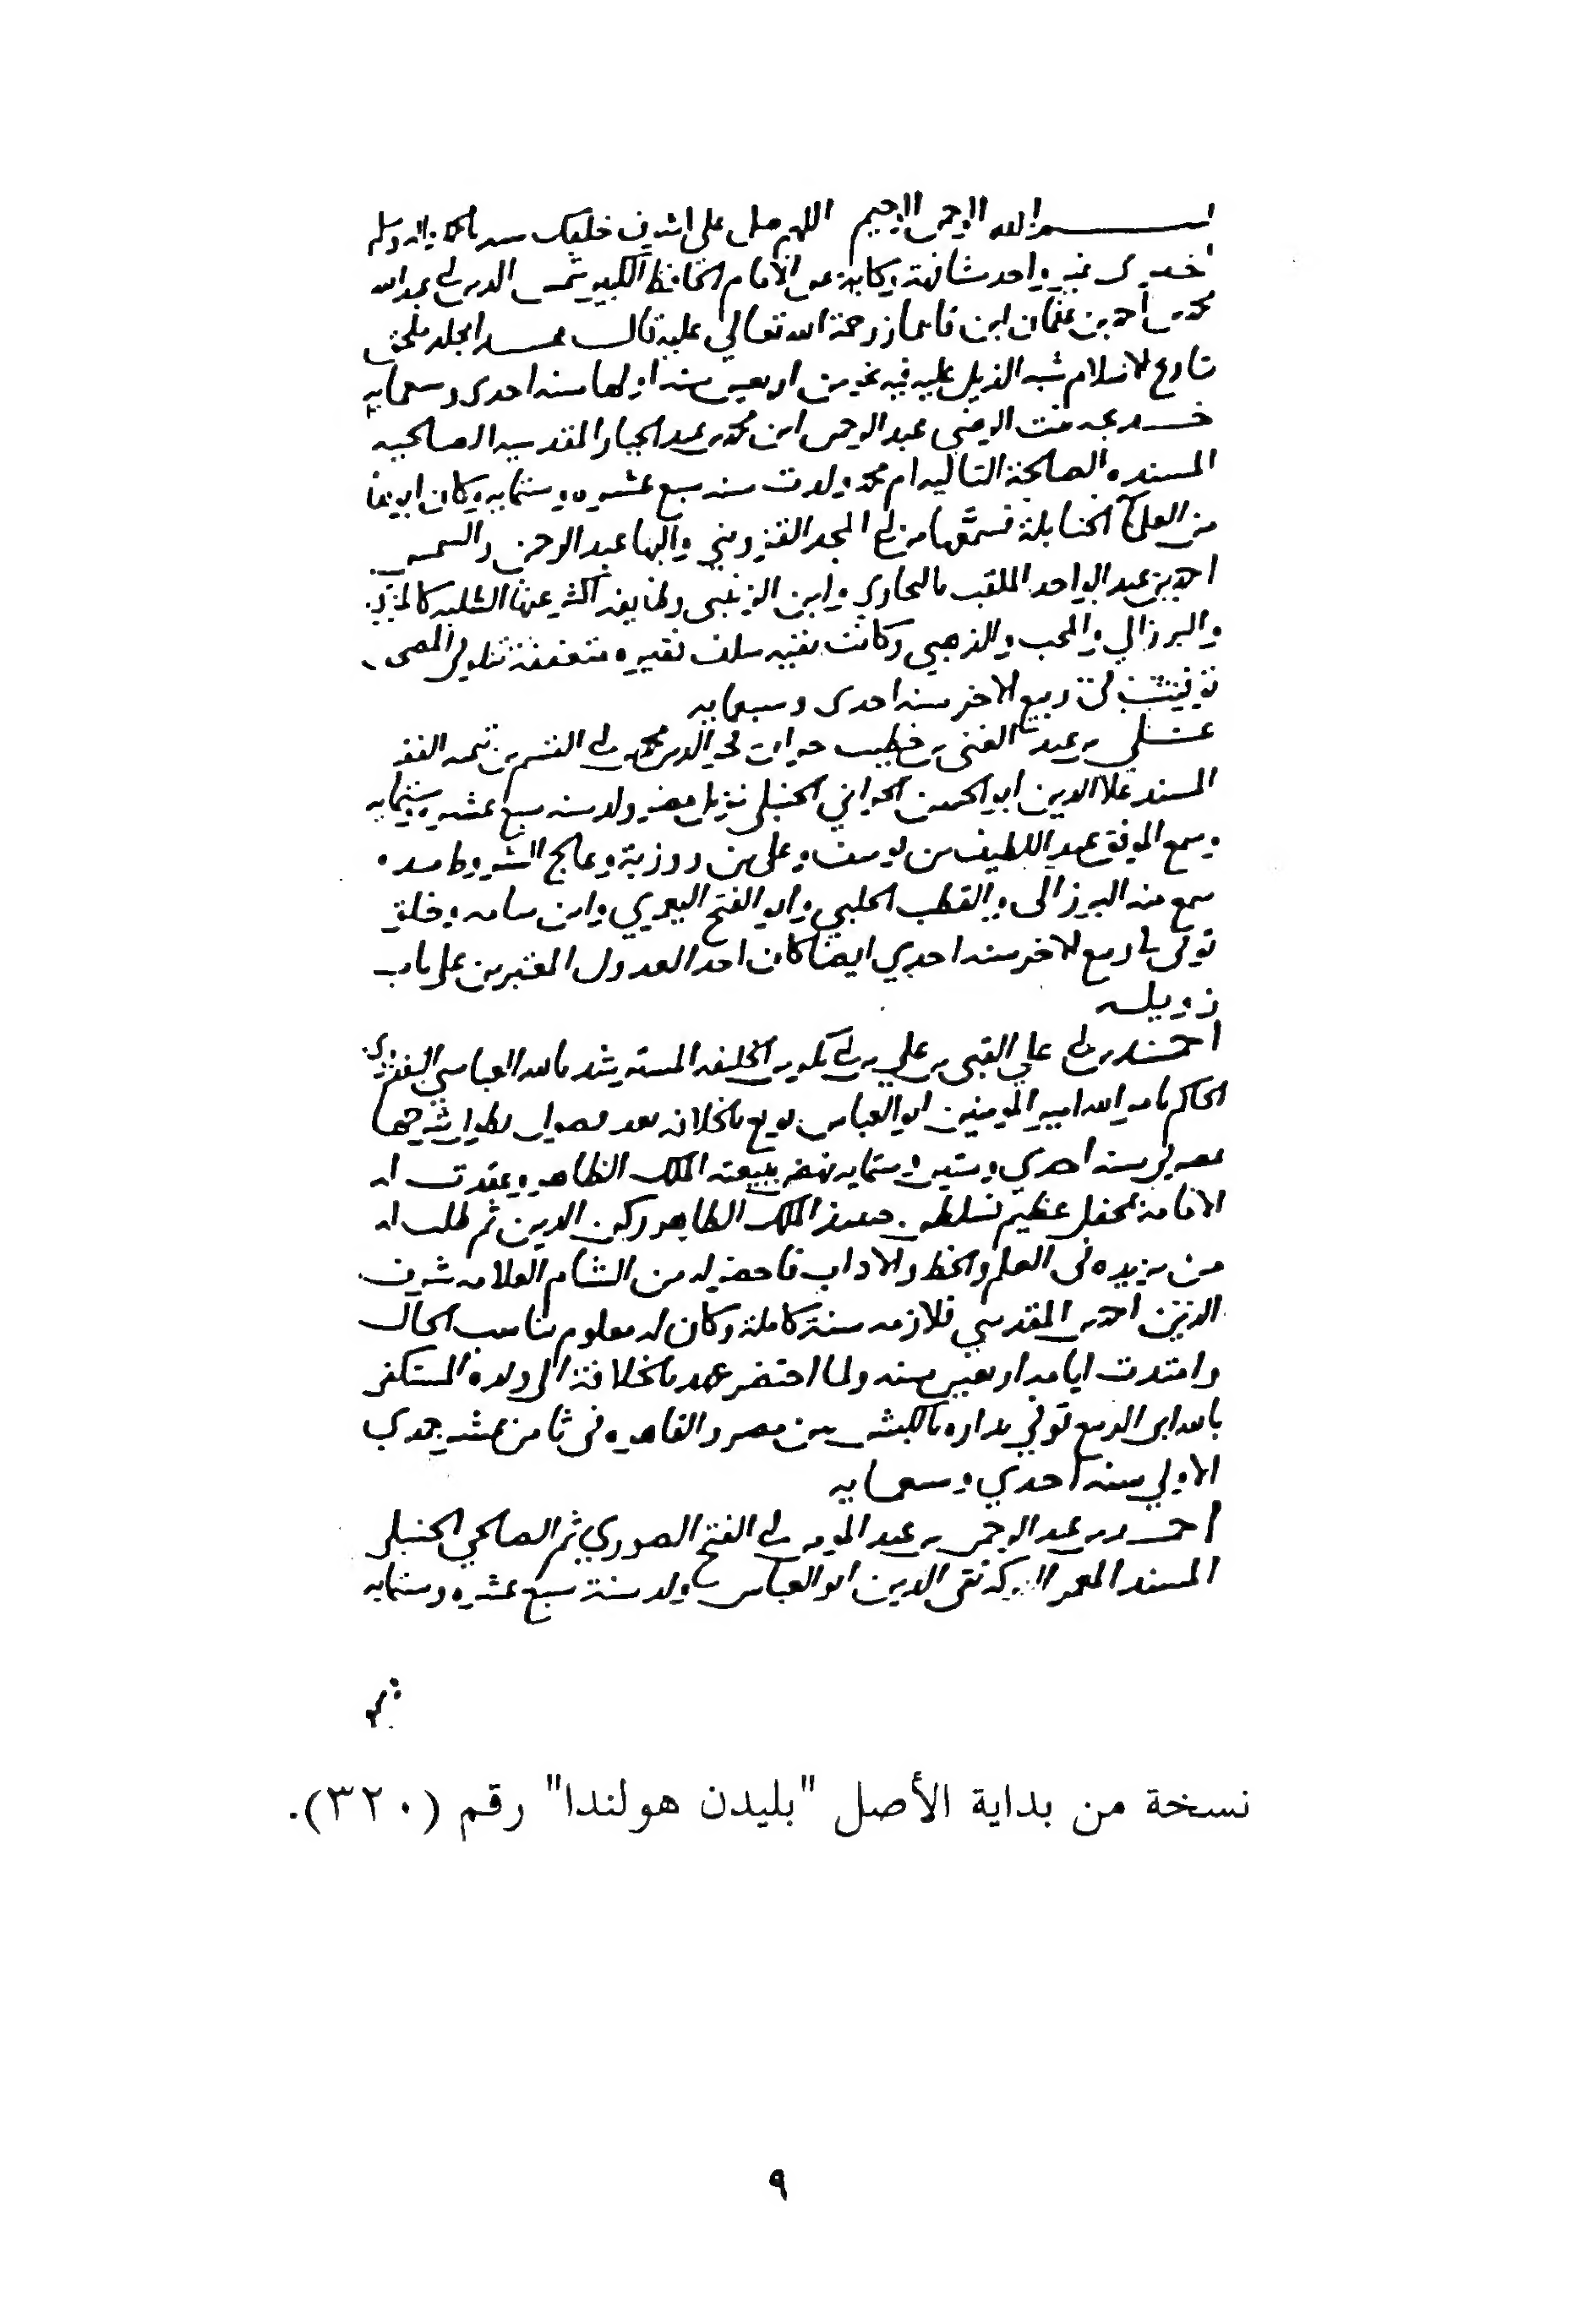 بسم الله الرحمن الرحيم اللهم صل على اشرف خلقك سيدنا محمد واله وسلم
اخبرني غير واحد شافهة وكتابة عن الامام الحافظ الكبير شمس الدين ابي عبد الله
محمد بن احمد بن عثمان ابن قايماز رحمة الله تعالى عليه قال هذا مجلد ملحق
تاريخ الاسلام شبه الذيل عليه فيه نحو من اربعين سنه اولها سنه احدى وسبعمايه
خديجه بنت الرضي عبد الرحمن ابن محمد بن عبد الجبار المقدسيه الصالحيه
المسنده الصالحة التاليه ام محمد ولدت سنه سبع عشره وستمايه وكان ابوها
من العلمآ الحنابلة فسمَّعها من المجد القزويني والبها عبد الرحمن والشمس
احمد بن عبد الواحد الملقب بالبخاري وابن الزبيدي وطايفه اكثر عنها الطلبه كالمزي
والبرزالي والمحب والذهبي وكانت بقيه سلف فقيره متعففة
توفيت في ربيع الاخر سنه احدى وسبعمايه
علي بن عبد الغني بن خطيب حران فخر الدين محمد بن ابي القسم بن تيميه الفقيه
المسند علا الدين ابو الحسن الحراني الحنبلي نزيل مصر ولد سنه سبع عشره وستمايه
وسمع الموفق عبد اللطيف بن يوسف وعلي بن روزبة وعالج الشروط مده
سمع منه البرزالى والقطب الحلبي وابو الفتح اليعمري وابن سامه وخلق
توفى في ربيع الاخر سنه احدي ايضا كان احد العدول المعتبرين على باب
زويله
احمد بن ابي علي القبى بن علي بن ابي بكر بن الخليفه المسترشد بالله العباسي البغدادي
الحاكم بامر الله امير المومنين ابو العباس بويع بالخلافه بعد فصول يطول شرحها
بمصر في سنه احدي وستين وستمايه نهض ببيعته الملك الظاهر وعقدت له
الامامة بمحفل عظيم فسلطن حينئذ الملك الظاهر ركن الدين ثم طلب له
من يزيده فى العلم والخط والاداب فاحضر له من الشام العلامه شرف
الدين احمد بن المقدسي فلازمه سنة كاملة وكان له معلوم يناسب الحال
وامتدت ايامه اربعين سنه ولما احتضر عهد بالخلافة الى ولده المستكفى
بالله ابى الربيع توفي بداره بالكبش بين مصر والقاهره فى ثامن عشر جمدي
الاولي سنه احدي وسبعمايه
احمد بن عبد الرحمن بن عبد المومن بن ابي الفتح الصوري ثم الصالحي الحنبلي
المسند المعمر البركه تقى الدين ابو العباس ولد سنة سبع عشره وستمايه
نسخة من بداية الأصل "بليدن هولندا" رقم (٣٢٠).
٩